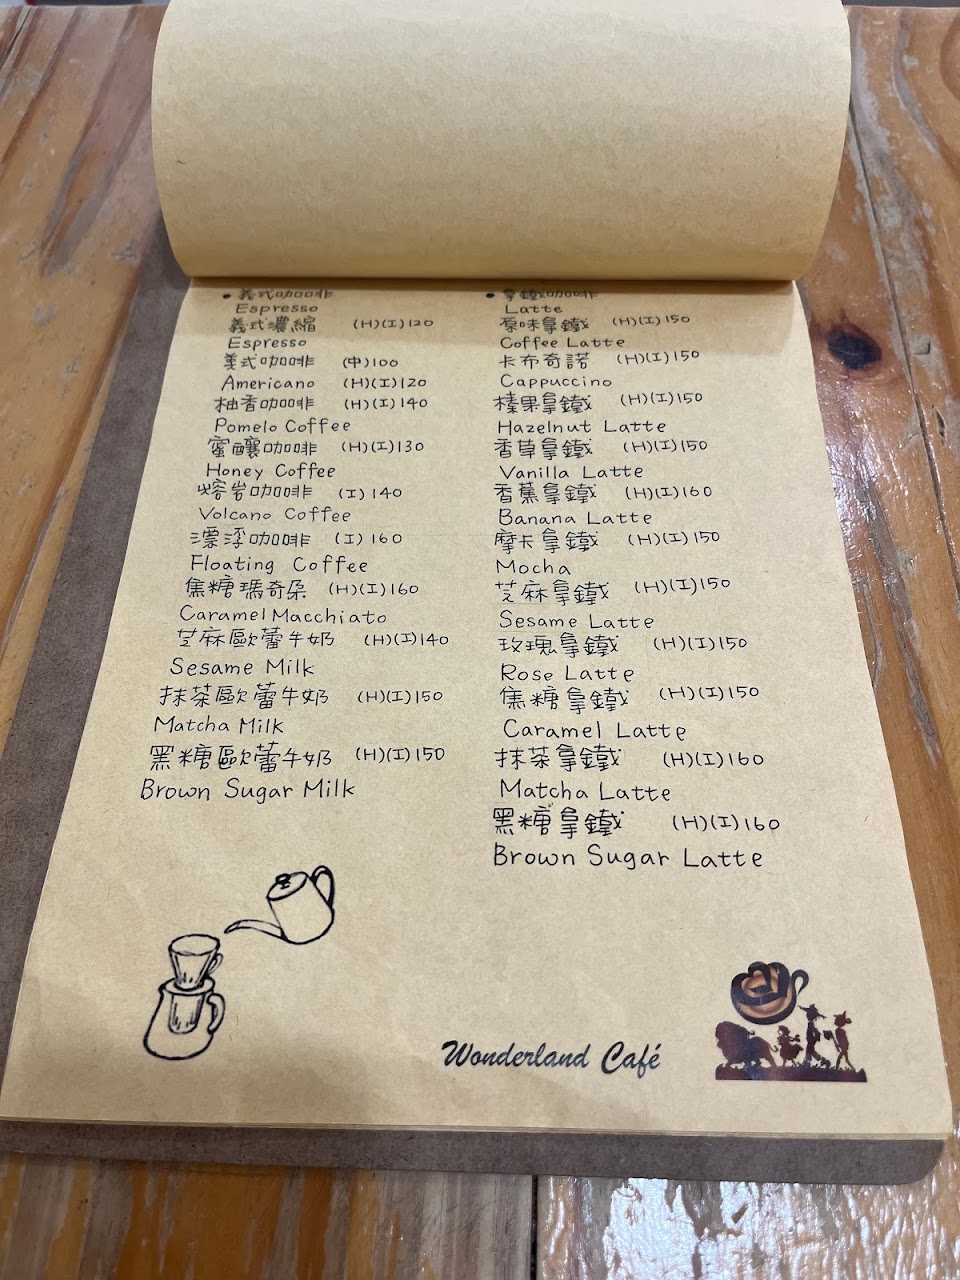 • 義式咖啡
Espresso
義式濃縮 (H)(I)120
Espresso
義式咖啡 (中)100
Americano (H)(I)120
柚香咖啡 (H)(I)140
Pomelo Coffee
蜜釀咖啡 (H)(I)130
Honey Coffee
熔岩咖啡 (I)140
Volcano Coffee
漂浮咖啡 (I)160
Floating Coffee
焦糖瑪奇朵 (H)(I)160
Caramel Macchiato
芝麻歐蕾牛奶 (H)(I)140
Sesame Milk
抹茶歐蕾牛奶 (H)(I)150
Matcha Milk
黑糖歐蕾牛奶 (H)(I)150
Brown Sugar Milk
• 拿鐵咖啡
Latte
原味拿鐵 (H)(I)150
Coffee Latte
卡布奇諾 (H)(I)150
Cappuccino
榛果拿鐵 (H)(I)150
Hazelnut Latte
香草拿鐵 (H)(I)150
Vanilla Latte
香蕉拿鐵 (H)(I)160
Banana Latte
摩卡拿鐵 (H)(I)150
Mocha
芝麻拿鐵 (H)(I)150
Sesame Latte
玫瑰拿鐵 (H)(I)150
Rose Latte
焦糖拿鐵 (H)(I)150
Caramel Latte
抹茶拿鐵 (H)(I)160
Matcha Latte
黑糖拿鐵 (H)(I)160
Brown Sugar Latte
Wonderland Café